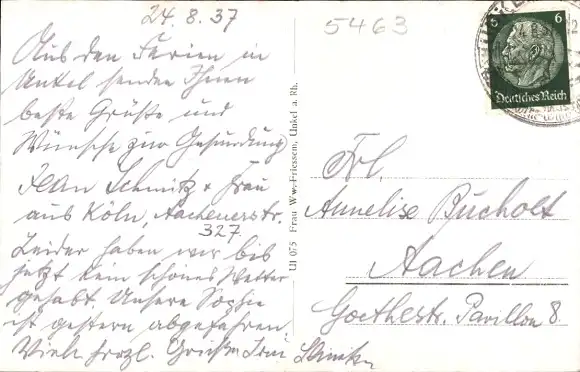 24.8.37
5463
Aus den Ferien in
Unkel senden Ihnen
beste Grüße und
Wünsche zur Gesundung
Jean Schmitz + Frau
aus Köln, Aachenerstr.
327.
Leider haben wir bis
jetzt kein schönes Wetter
gehabt. Unsere Sophie
ist gestern abgefahren.
Viele herzl. Grüße
LU 075 Frau Ww. Friessem, Unkel a. Rh.
6
Deutsches Reich
Frl.
Annelise Bucholt
Aachen
Goethestr. Pavillon 8.